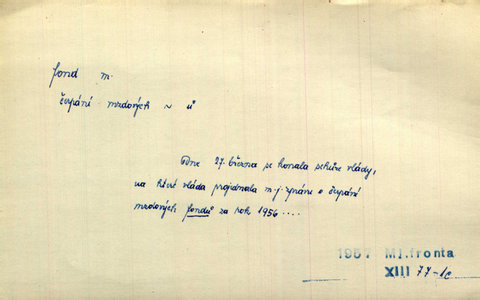 fond m.
čerpání mzdových ~ ů
Dne 27. března se konala schůze vlády,
na které vláda projednala m. j. zprávu o čerpání
mzdových fondů za rok 1956 ....
1957 Ml.fronta
XIII 77-1c